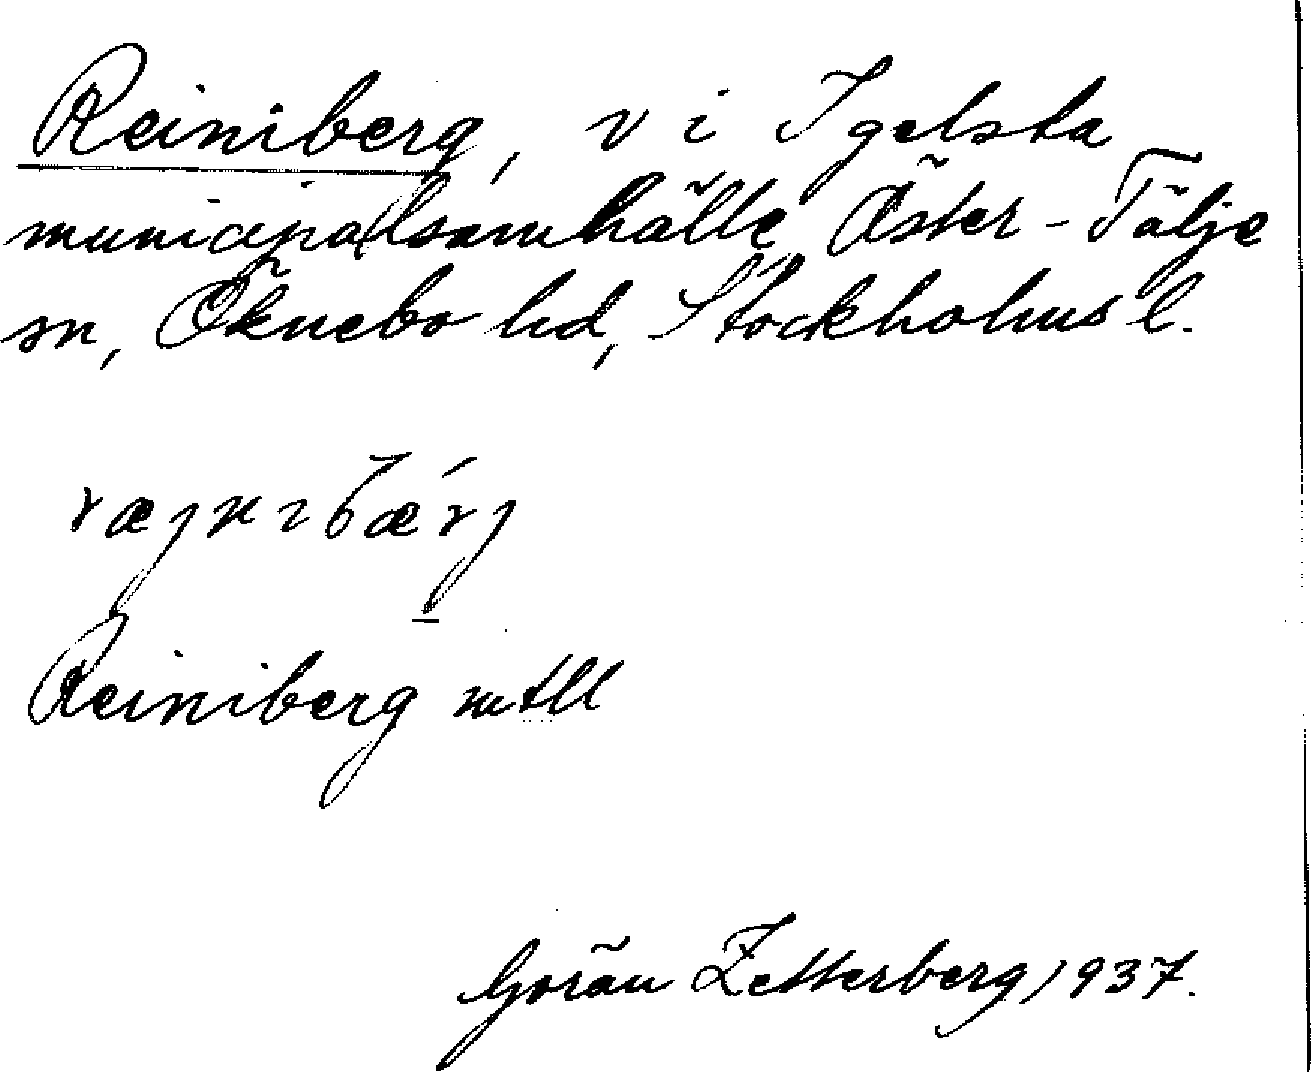 Reiniberg, v i Igelsta
municipalsamhälle Öster-Tälje
sn, Öknebo hd, Stockholms l.
ræjnibærj
Reiniberg mtll
Göran Zetterberg 1937.